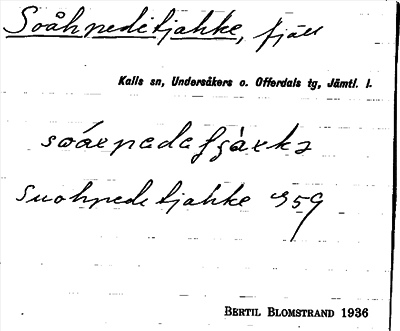 Soåhpedetjahke, fjäll
Kalls sn, Undersåkers o. Offerdals tg, Jämtl. l.
Suohpedetjahke 959
BERTIL BLOMSTRAND 1936